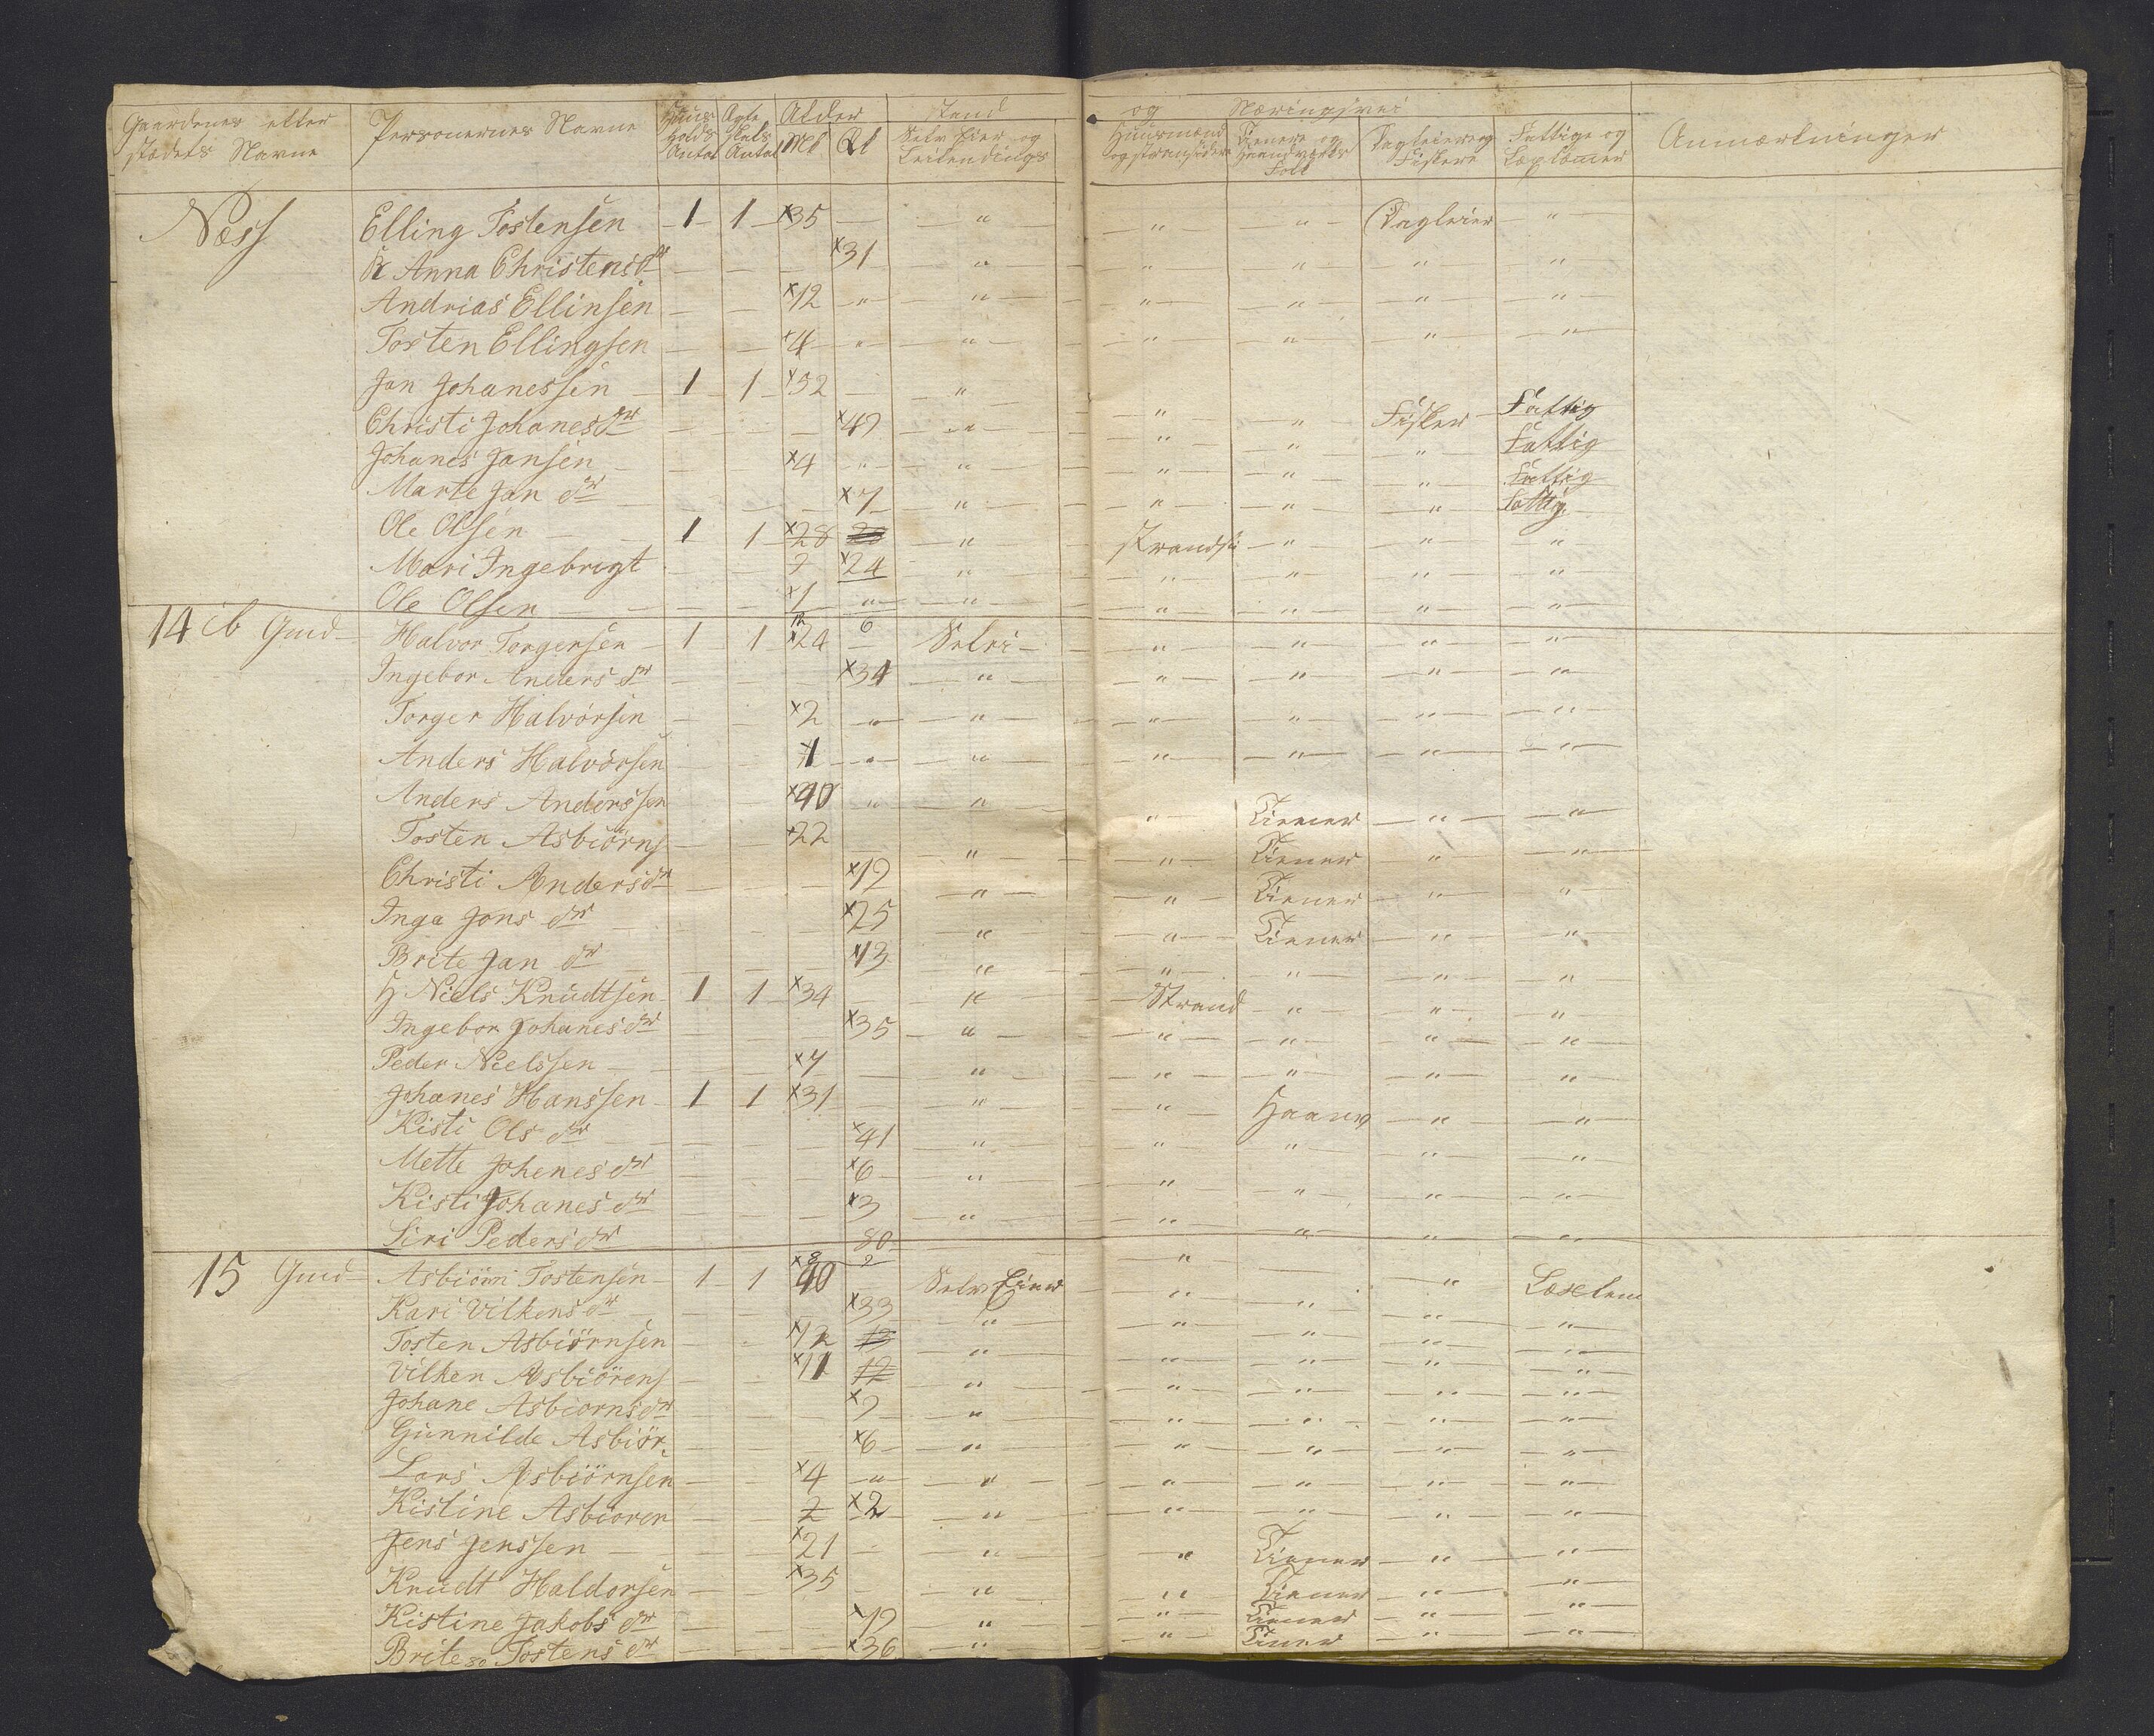 Gaardenes eller stædets Navne | Personernes Navne | Huus holds Antal | Ægte skabs Antal | Alder Mk Qk | Stand Selv Eier og Leilendings | og Næringsvei Huusmænd og strandsidere | Tienere og Haandværks Folk | Dagleiere og Fiskere | Fattige og Læglæmer | Anmærkninger
Næss Elling Tostensen 1 1 x35 — " " " Dagleier "
Anna Christensdr x31 " " " " "
Andrias Ellinsen x12 " " " " " "
Torsten Ellingsen x4 " " " " " "
Jan Johanessen 1 1 x52 " " " Fisker Fattig
Christi Johanesdr x49 " " " " Fattig
Johanes Jansen x4 " " " " " Fattig
Marte Jan dr x7 " " " " Fattig
Ole Olsen 1 1 x28 " Strandsi " " "
Mari Ingebrigt x24 " " " " "
Ole Olsen x1 " " " " " "
12 6
14 ib Gmd Halvor Torgersen 1 1 x24 — Selvei " " " "
Ingebor Anders dr x34 " " " " "
Torger Halvorsen x2 " " " " " "
Anders Halvorsen 1 " " " " " "
Anders Anderssen x40 " " " Tiener " "
Tosten Asbiörns 22 " " Tiener " "
Christi Andersdr x19 " " Tiener " "
Inga Jons dr x25 " " Tiener " "
Brite Jan dr x13 " " " " "
H Niels Knudtsen 1 1 x34 " Strand " " "
Ingebor Johanes dr x35 " " " " "
Peder Nielssen x7 " " " " "
Johanes Hanssen 1 1 x31 " " Haanv " "
Kisti Ols dr x41 " " " " "
Mette Johenes dr x6 " " " " "
Kisti Johanes dr x3 " " " " "
Siri Peders dr 80 " " " " Læxlem
x8 2
15 Gmd Asbiörn Tostensen 1 1 40 Selv Eier " " " "
Kari Vilkens dr x33 " " " " "
Tosten Asbiörnsen x12 " " " " "
Vilken Asbiörens x11 " " " " "
Johane Asbiorns dr x9 " " " " "
Gunnilde Asbiör x6 " " " " "
Lars Asbiörnsen x4 " " " " " "
Kistine Asbioren x2 " " " " "
Jens Jenssen x21 " " Tiener " "
Knudt Haldorsen x35 " " Tiener " "
Kistine Jakobs dr x19 " " Tiener " "
Brite Tostens dr x36 " " Tiener " "